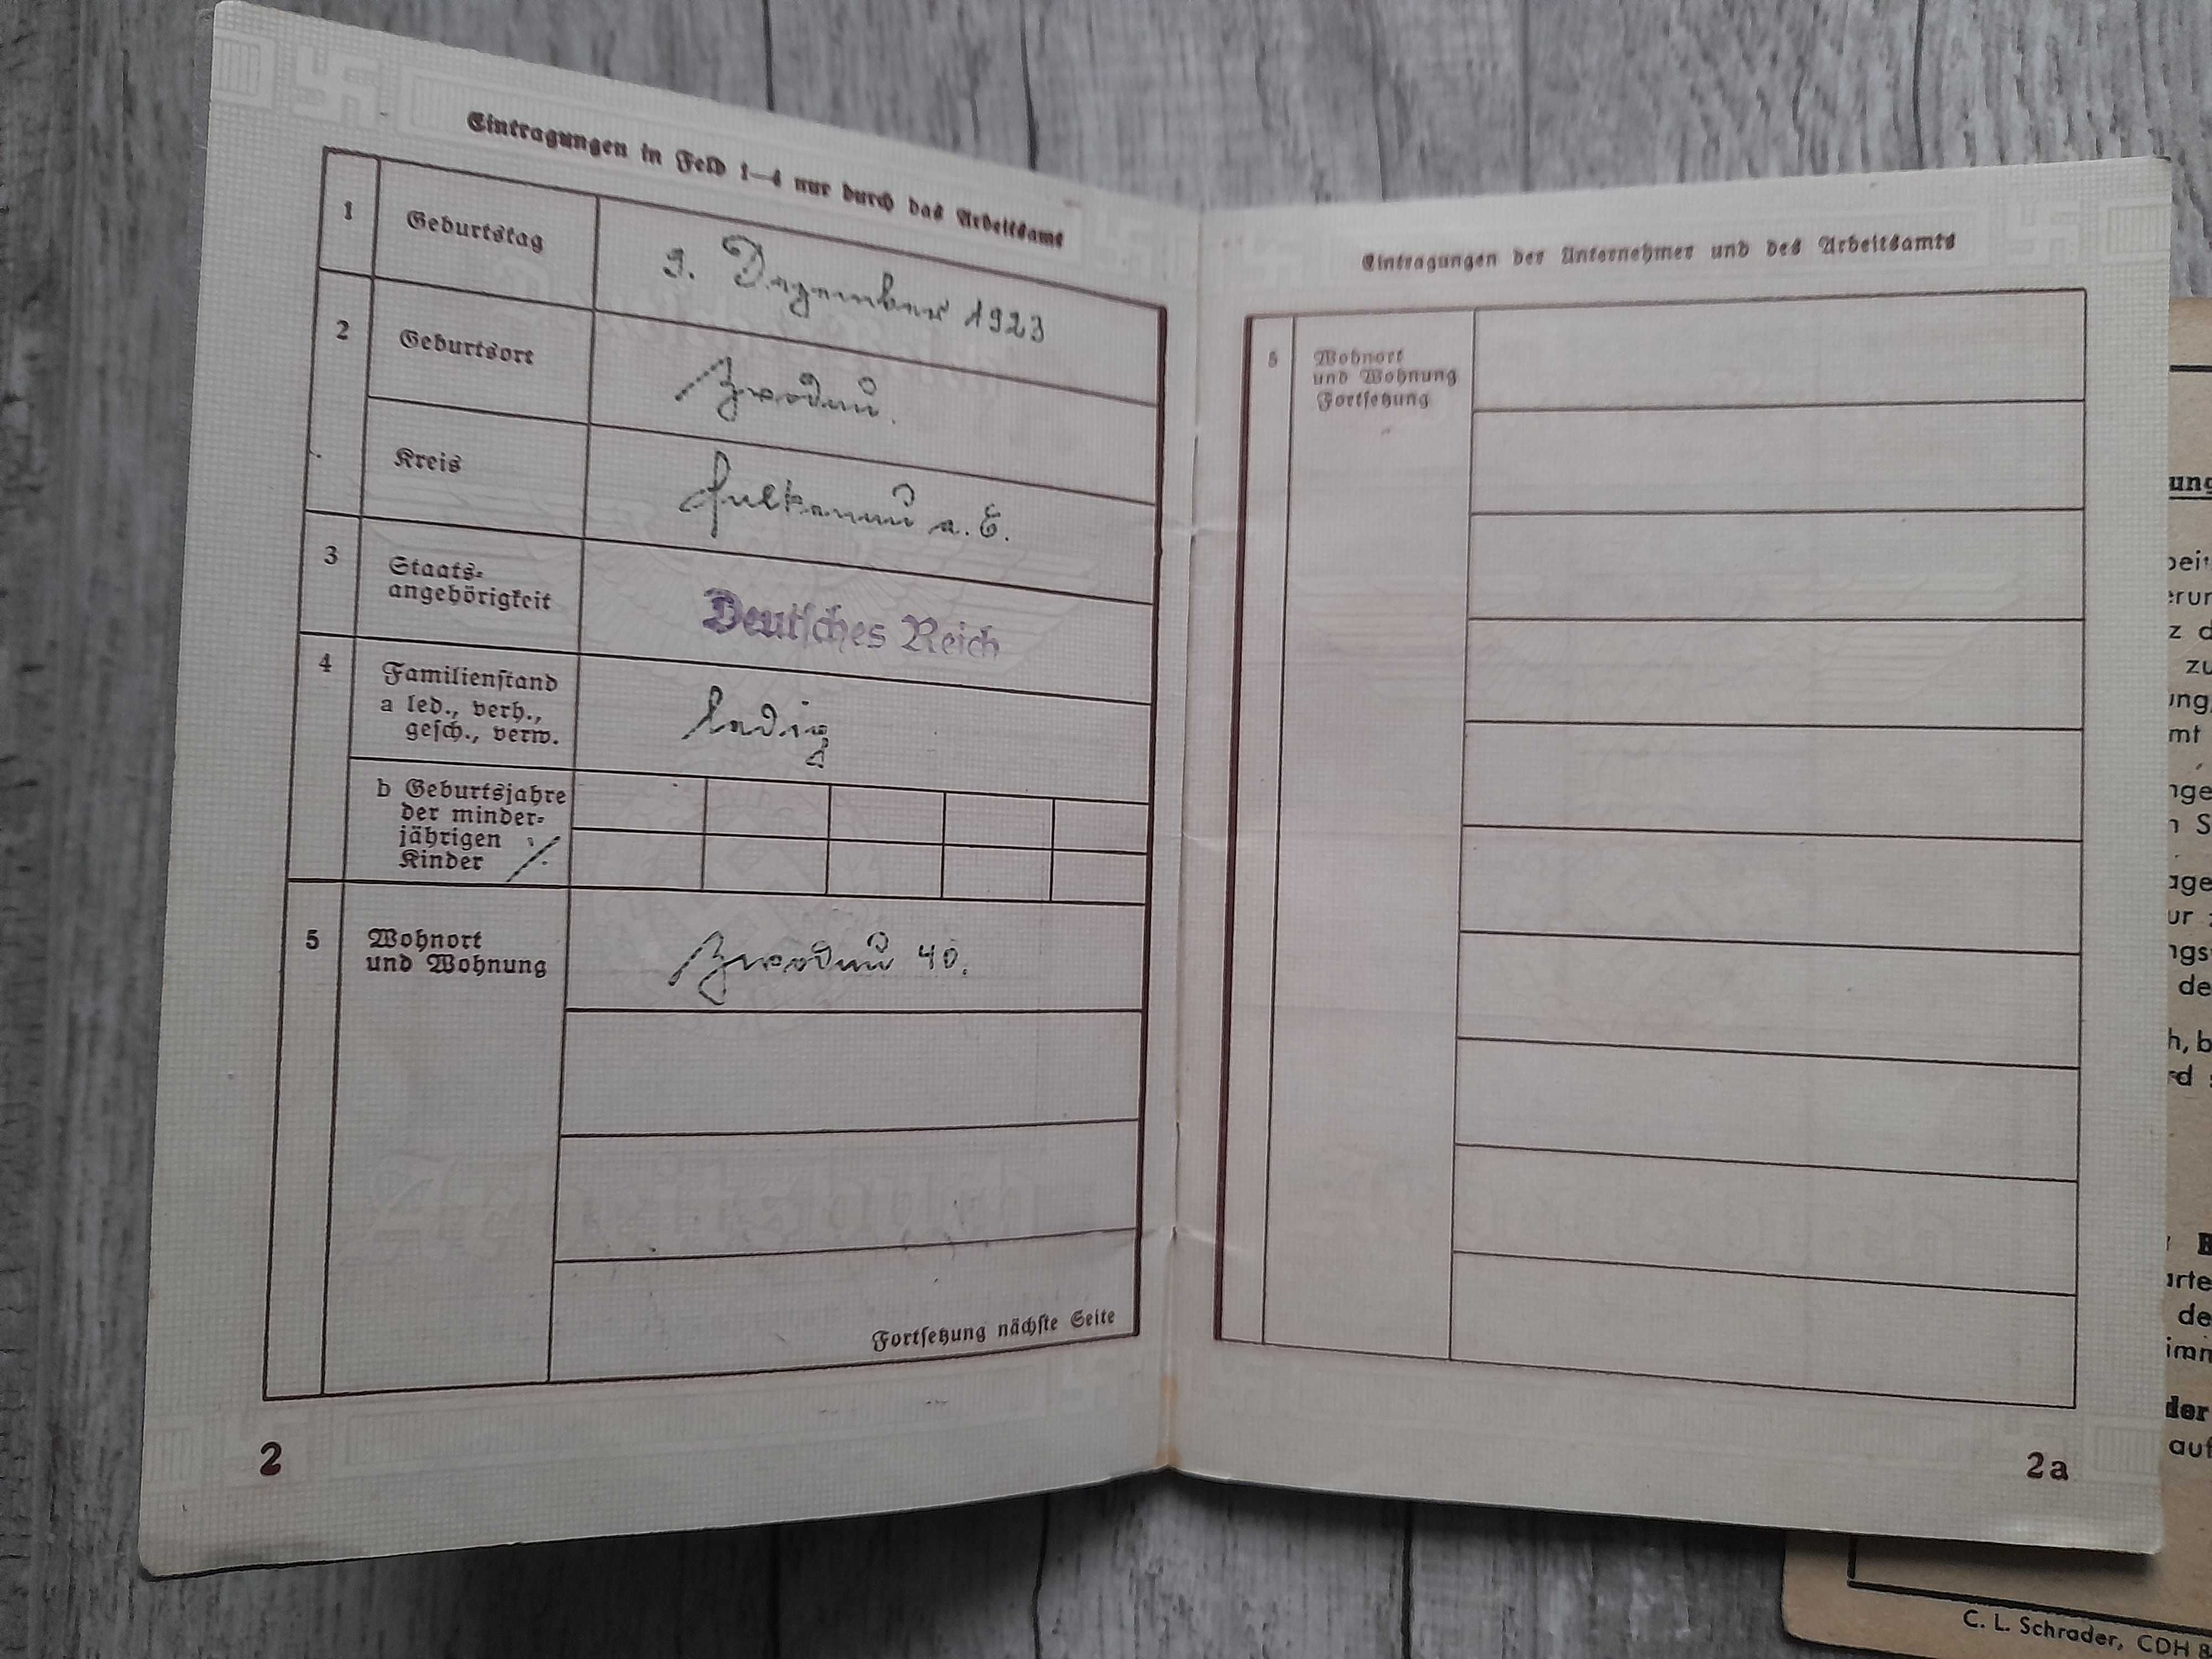 Eintragungen in Feld 1—4 nur durch das Arbeitsamt
1 Geburtstag 9. Dezember 1923
2 Geburtsort Zwodau.
Kreis Falkenau a. E.
3 Staats-
angehörigkeit Deutsches Reich
4 Familienstand
a led., verh.,
gesch., verw. ledig
b Geburtsjahre
der minder-
jährigen
Kinder ./.
5 Wohnort
und Wohnung Zwodau 40.
Fortsetzung nächste Seite
2
Eintragungen der Unternehmer und des Arbeitsamts
5 Wohnort
und Wohnung
Fortsetzung
2a
C. L. Schrader, CDH